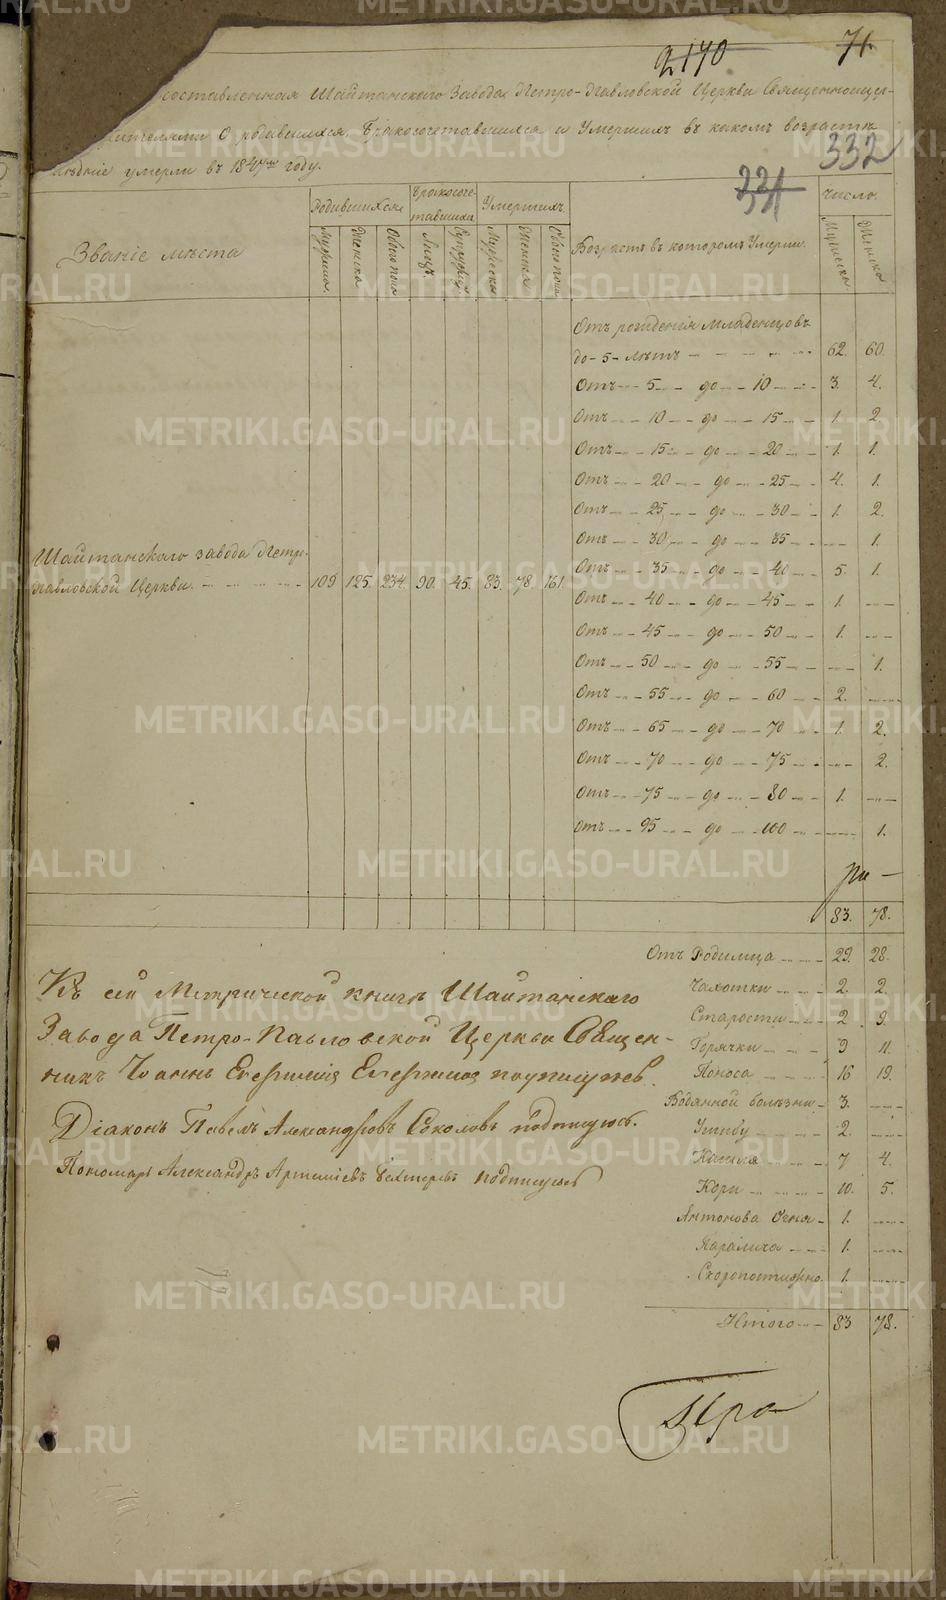 2170
71.
составленная Шайтанскаго Завода Петро-Павловской Церкви Священноцер-
ителями о родившихся, бракосочетавшихся и умершихъ въ какомъ возрастѣ
умерли въ 1847мъ году.
332
331
Званіе мѣста
Родившихся
Бракосоче-
тавшихся
Умершихъ
Возрастъ въ которомъ Умерли.
число.
Мужска.
Женска
Обоего пола
Лицъ.
Супружеј
Мужеска
Женска
Обоего пола
Мужеска
Женска
Отъ рожденія младенцовъ
до - 5 - лѣтъ 62. 60.
Отъ 5 до 10 3. 4.
Отъ 10 до 15 1. 2.
Отъ 15 до 20 1. 1.
Отъ 20 до 25 4. 1.
Отъ 25 до 30 1. 2.
Отъ 30 до 35 1.
Отъ 35 до 40 5. 1.
Отъ 40 до 45 1.
Отъ 45 до 50 1.
Отъ 50 до 55 1.
Отъ 55 до 60 2.
Отъ 65 до 70 1. 2.
Отъ 70 до 75 2.
Отъ 75 до 80 1.
Отъ 95 до 100 1.
Шайтанскаго завода Петро-
павловской Церкви. 109 125. 234. 90. 45. 83. 78. 161.
83. 78.
Отъ Родимца 29. 28.
Чахотки 2. 2.
Старости 2. 9.
Горячки 9 11.
Поноса 16 19.
Водянной болѣзни 3.
Ушибу 2.
Кашля 7 4.
Кори 10. 5.
Антонова Огня 1.
Паралича 1.
Скоропостижно. 1.
Итого 83 78.
Къ сей Метрической книгѣ Шайтанскаго
Завода Петро-Павловской Церкви Священ-
никъ Іоаннъ подписуюсь.
Діаконъ Павелъ Александровъ Соколовъ подписуюсь.
Пономарь Александръ Артеміевъ подписуюсь
METRIKI.GASO-URAL.RU